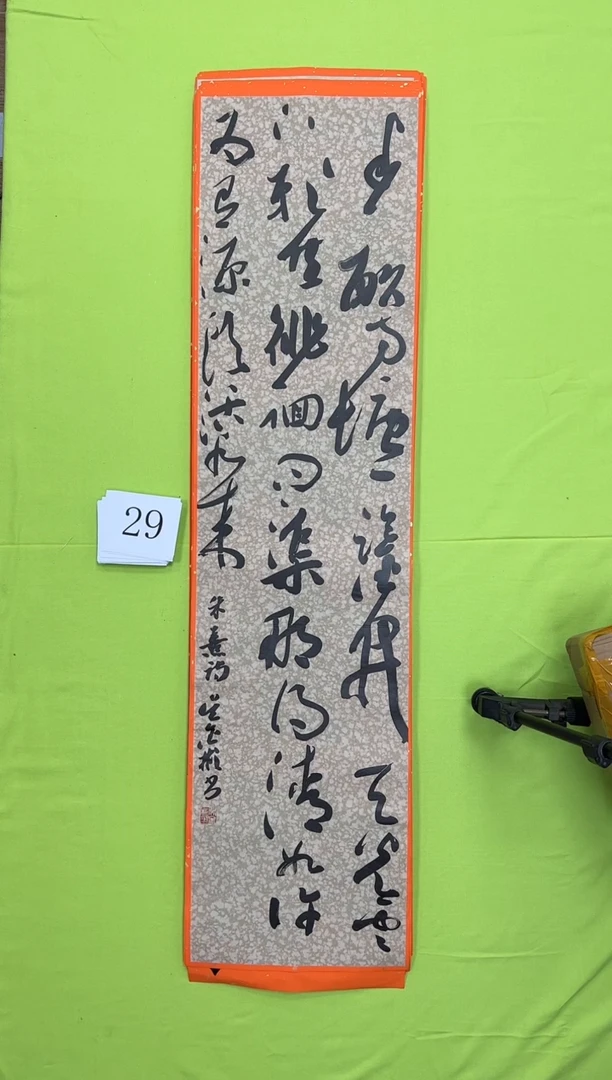 半畝方塘一鑑開天光雲
影共徘徊問渠那得清如許
為有源頭活水來
朱熹詩 書
29